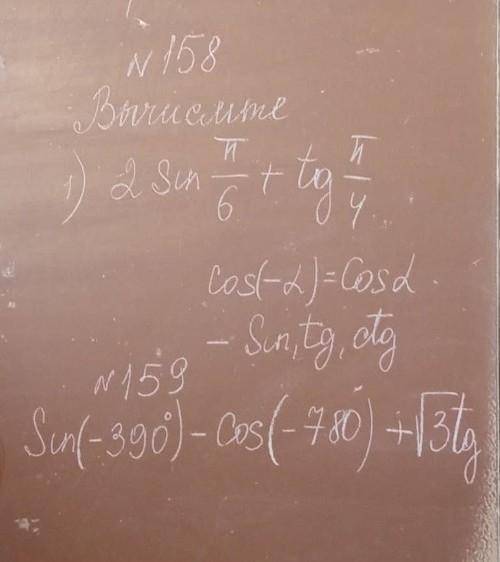 N 158
Вычислите
1) 2 Sin π/6 + tg π/4
cos(-α) = Cosα
- Sin, tg, ctg
N 159
Sin(-390°) - Cos(-780) + √3tg